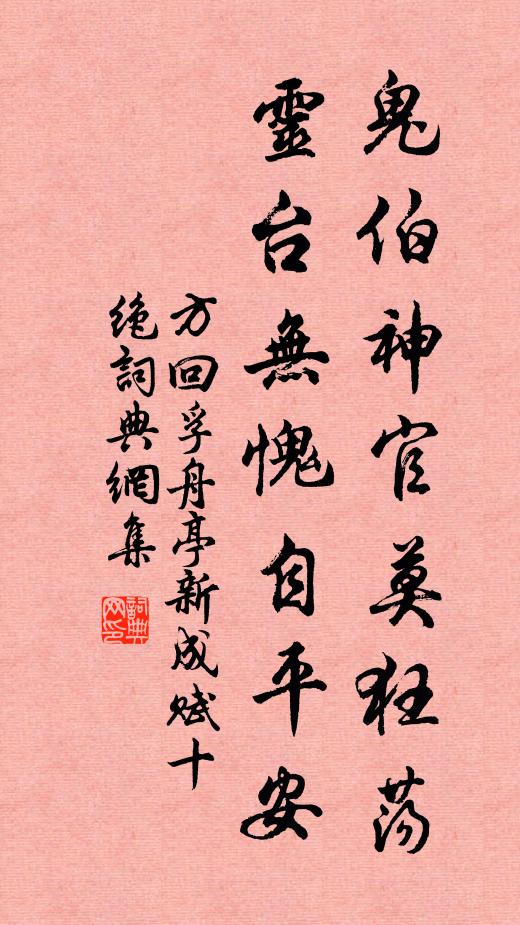 鬼伯神官莫狂荡
靈台無愧自平安
方回孚舟亭新成赋十
绝詞典網集
詞典
网印